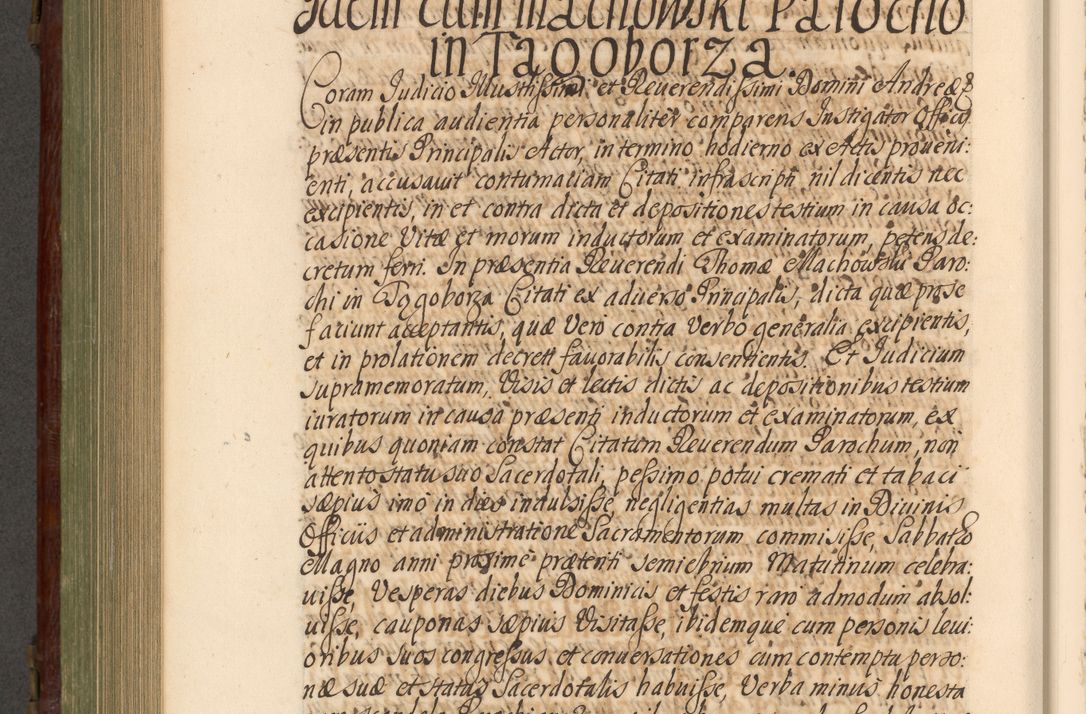 Idem cum Machowski Parocho
in Tągoborza.
Coram Judicio Illustrissimi et Reuerendissimi Domini Andreæ &
in publica audientia personaliter comparens Instigator Officij
præsentis Principalis Actor, in termino hodierno ex Actis proueni:
enti, accusauit contumaciam Citati infrascripti nil dicentis nec
excipientis, in et contra dicta et depositiones testium in causa oc:
casione Vitæ et morum inductorum et examinatorum, petens de:
cretum ferri. In præsentia Reuerendi Thomæ Machowski Paro:
chi in Tągoborza Citati ex aduerso Principalis, dicta quæ pro se
faciunt acceptantis, quæ Vero contra Verbo generalia excipientis,
et in prolationem decreti fauorabilis consentientis. Et Judicium
supramemoratum, Visis et lectis dictis ac depositionibus testium
iuratorum in causa præsenti inductorum et examinatorum, ex
quibus quoniam constat Citatum Reuerendum Parochum, non
attento statu suo Sacerdotali, pessimo potui cremati et tabaci
sæpius imo in dies indulsisse, negligentias multas in Diuinis
Officiis et administratione Sacramentorum commisisse, Sabbatho
Magno anni proxime præteriti semiebrium Matutinum celebra:
uisse, Vesperas diebus Dominicis et festis raro admodum absol:
uisse, cauponas sæpius Visitasse, ibidemque cum personis leui:
oribus suos congressus et conuersationes cum contemptu perso:
næ suæ et status Sacerdotalis habuisse, Verba minus honesta